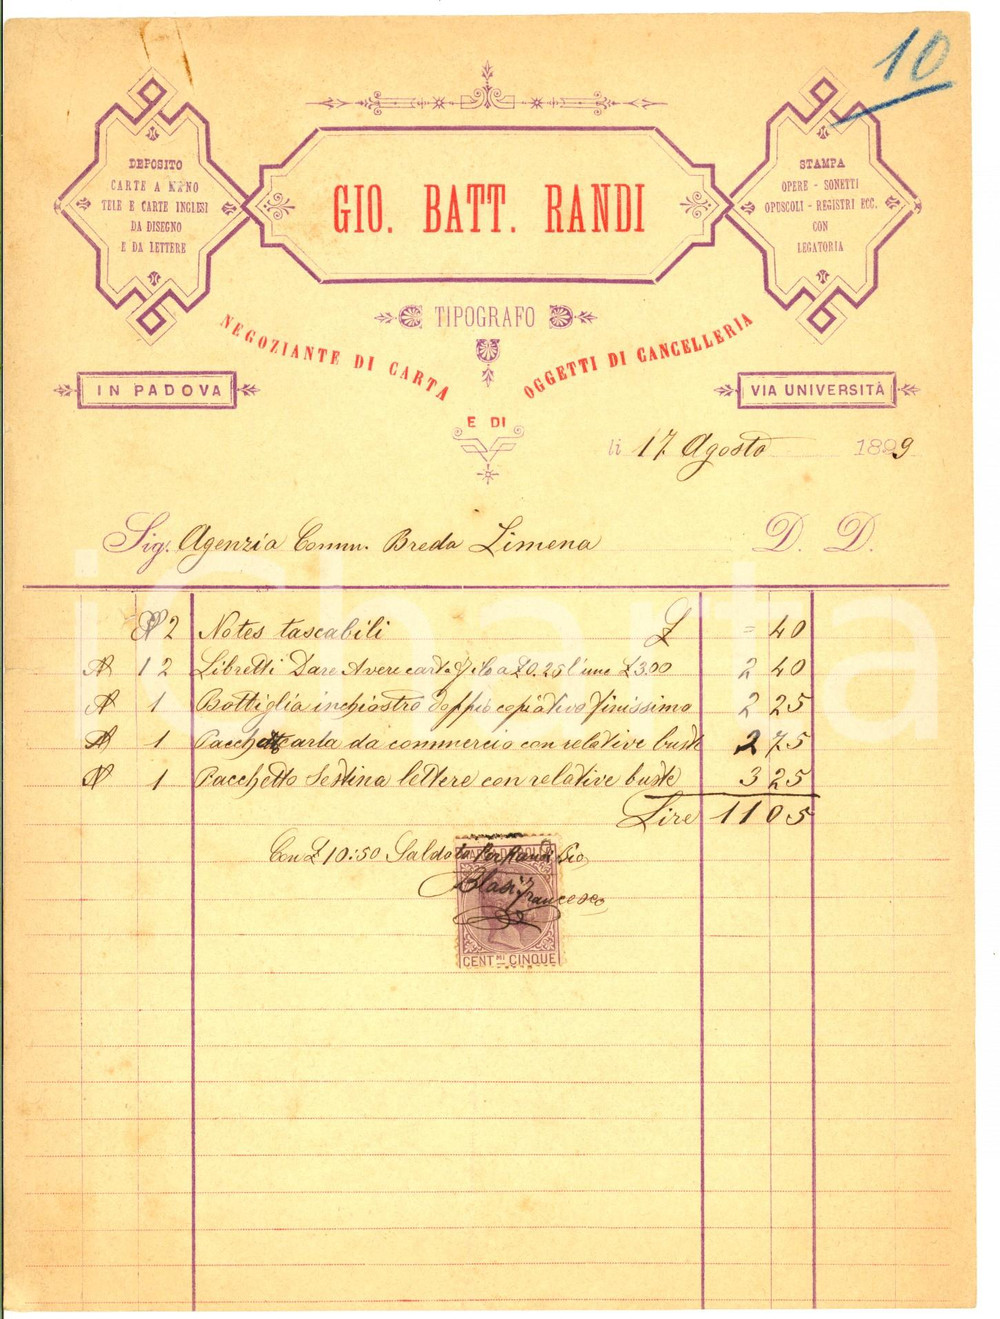 10
DEPOSITO
CARTE A MANO
TELE E CARTE INGLESI
DA DISEGNO
E DA LETTERE
GIO. BATT. RANDI
STAMPA
OPERE - SONETTI
OPUSCOLI - REGISTRI ECC.
CON
LEGATORIA
TIPOGRAFO
NEGOZIANTE DI CARTA
E DI
OGGETTI DI CANCELLERIA
IN PADOVA
VIA UNIVERSITÀ
li 17 Agosto 1899
Sig. Agenzia Comm. Breda Limena D. D.
N 2 Notes tascabili £ = 40
N 12 Libretti Dare Avere carta filo a £0.25 l'uno £3.00 2 40
N 1 Bottiglia inchiostro doppio copiativo finissimo 2 25
N 1 Pacchetto carta da commercio con relative buste 2 75
N 1 Pacchetto Sestina lettere con relative buste 3 25
Lire 11 05
Con £ 10:50 Saldato Per Randi Gio
Blasi Francesco
CENT.MI CINQUE
iCharta